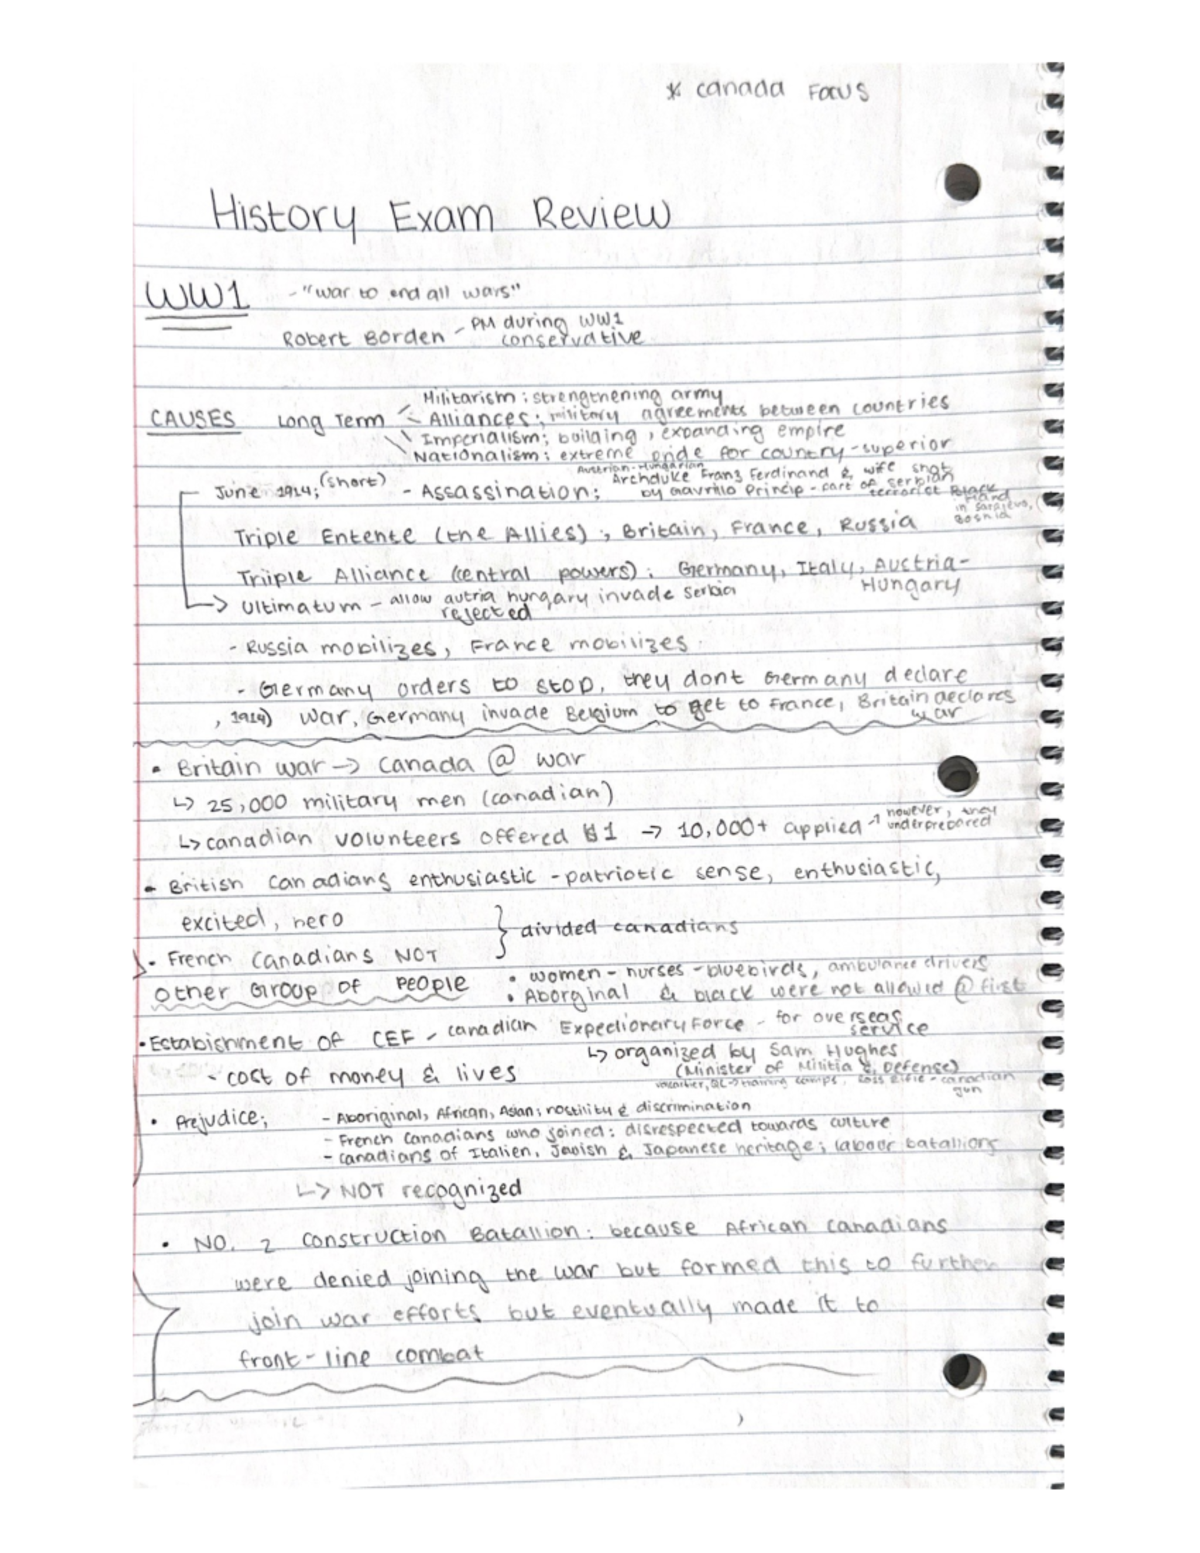 * Canada Focus
History Exam Review
WW1 - "war to end all wars"
Robert Borden - PM during WW1
conservative
Militarism: strengthening army
CAUSES Long Term - Alliances; military agreements between countries
Imperialism; building, expanding empire
Nationalism: extreme pride for country-superior
Austrian-Hungarian
June 1914; (short) - Assassination; Archduke Franz Ferdinand & wife shot
by Gavrillo Princip - part of serbian
terrorist Black
Hand
in Sarajevo,
Bosnia
Triple Entente (the Allies); Britain, France, Russia
Triiple Alliance (central powers): Germany, Italy, Austria-
Hungary
→ Ultimatum - allow autria hungary invade serbia
rejected
- Russia mobilizes, France mobilizes.
- Germany orders to stop, they dont Germany declare
, 1914) war, Germany invade Belgium to get to France, Britain declares
war
• Britain war → Canada @ war
↳ 25,000 military men (canadian)
↳ canadian volunteers offered $1 → 10,000+ applied → however, they
underprepared
- British Canadians enthusiastic - patriotic sense, enthusiastic,
excited, hero
} divided canadians
• French Canadians NOT
Other Group of People • women - nurses - bluebirds, ambulance drivers
• Aborginal & black were not allowed @ first
• Estabishment of CEF - canadian Expedionary Force - for overseas
service
↳ organized by Sam Hughes
(Minister of Militia & Defense)
- cost of money & lives
valcartier, QC → training camps, Ross Rifle - canadian
gun
• Prejudice; - Aboriginal, African, Asian; hostility & discrimination
- French Canadians who joined: disrespected towards culture
- canadians of Italien, Jewish & Japanese heritage; labour batallions
↳ NOT recognized
• NO. 2 Construction Batallion: because African Canadians
were denied joining the war but formed this to further
join war efforts but eventually made it to
front-line combat